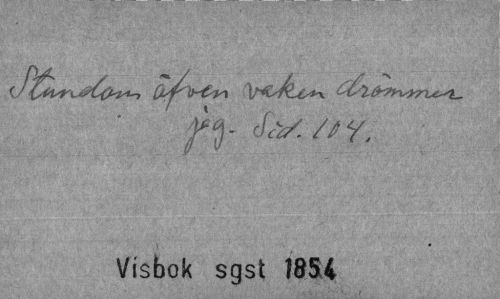 Stundom äfven vaken drömmer
jag. Sid. 104.
Visbok sgst 1854